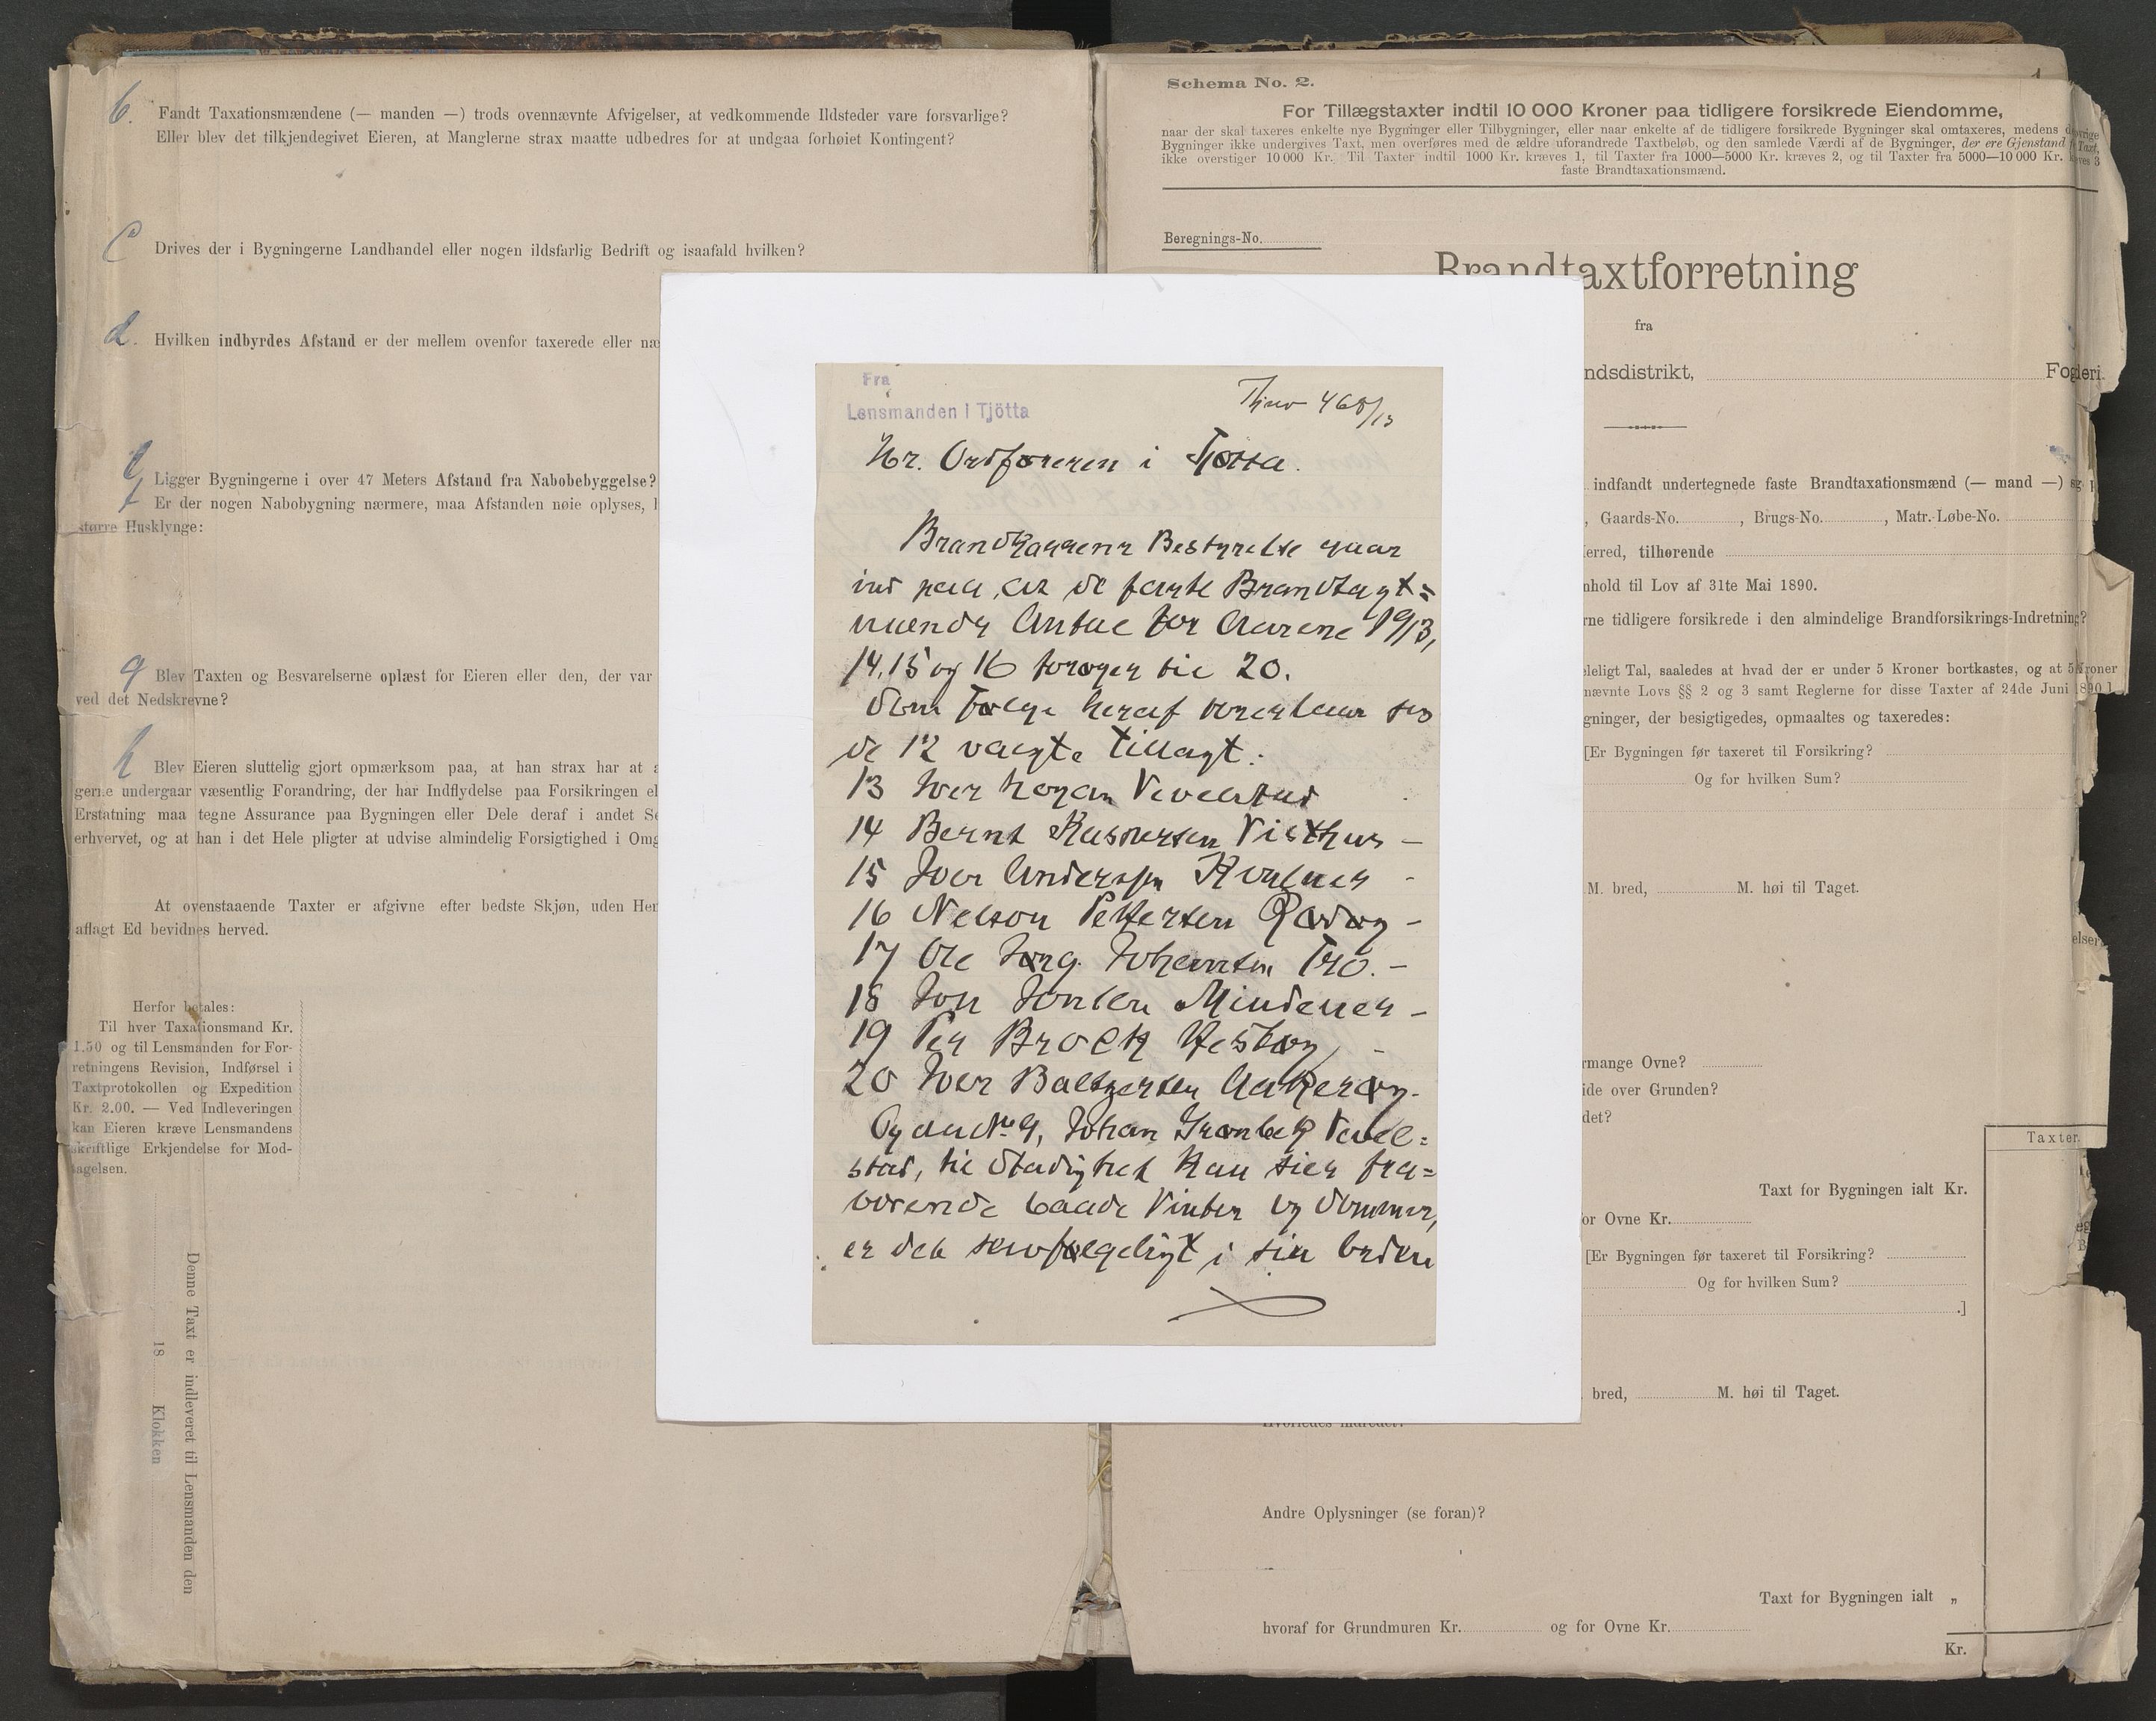 b. Fandt Taxationsmændene (— manden —) trods ovennævnte Afvigelser, at vedkommende Ildsteder vare forsvarlige?
Eller blev det tilkjendegivet Eieren, at Manglerne strax maatte udbedres for at undgaa forhøiet Kontingent?
c Drives der i Bygningerne Landhandel eller nogen ildsfarlig Bedrift og isaafald hvilken?
d. Hvilken indbyrdes Afstand er der mellem ovenfor taxerede eller næ
e Ligger Bygningerne i over 47 Meters Afstand fra Nabobebyggelse?
f Er der nogen Nabobygning nærmere, maa Afstanden nøie oplyses,
større Husklynge:
g Blev Taxten og Besvarelserne oplæst for Eieren eller den, der var
ved det Nedskrevne?
h Blev Eieren sluttelig gjort opmærksom paa, at han strax har at
gerne undergaar væsentlig Forandring, der har Indflydelse paa Forsikringen el
Erstatning maa tegne Assurance paa Bygningen eller Dele deraf i andet Se
erhvervet, og at han i det Hele pligter at udvise almindelig Forsigtighed i Omg
At ovenstaaende Taxter er afgivne efter bedste Skjøn, uden Hen
aflagt Ed bevidnes herved.
Herfor betales:
Til hver Taxationsmand Kr.
1.50 og til Lensmanden for For-
retningens Revision, Indførsel i
Taxtprotokollen og Expedition
Kr. 2.00. — Ved Indleveringen
kan Eieren kræve Lensmandens
skriftlige Erkjendelse for Mod-
tagelsen.
Denne Taxt er indleveret til Lensmanden den
18 Klokken
Fra
Lensmanden i Tjötta
468/13
Hr. Ordføreren i Tjøtta.
Brandkassens Bestyrelse gaar
ind paa, at de faste Brandtagt=
mænds Antal for Aarene 1913,
14, 15 og 16 forøges til 20.
Som Følge heraf
de 12 valgte tillagt:
13 Iver Hagen Vevelstad
14 Bernt Kaspersen Visthus —
15 Iver Anderssen -
16 Nelson Pettersen Rødøy -
17 Ole Ing. Johansen Tro. -
18 Jon Jonsen Mindenes -
19 Per Brock Hestøy, -
20 Iver Baltzersen Aakerøy.
Og da No 9, Johan Grønbek Vevel=
stad, til Stadighed kan sies fra=
værende baade Vinter og Sommer,
er det selvfølgeligt i sin Orden
Schema No. 2.
For Tillægstaxter indtil 10 000 Kroner paa tidligere forsikrede Eiendomme,
naar der skal taxeres enkelte nye Bygninger eller Tilbygninger, eller naar enkelte af de tidligere forsikrede Bygninger skal omtaxeres, medens de øvrige
Bygninger ikke undergives Taxt, men overføres med de ældre uforandrede Taxtbeløb, og den samlede Værdi af de Bygninger, der ere Gjenstand f Taxt,
ikke overstiger 10 000 Kr. Til Taxter indtil 1000 Kr. kræves 1, til Taxter fra 1000—5000 Kr. kræves 2, og til Taxter fra 5000—10 000 Kr. kræves 3
faste Brandtaxationsmænd.
Beregnings-No.
Brandtaxtforretning
fra
ndsdistrikt, Fogderi.
indfandt undertegnede faste Brandtaxationsmænd (— mand —) sig
, Gaards-No. , Brugs-No. , Matr.-Løbe-No.
erred, tilhørende
nhold til Lov af 31te Mai 1890.
rne tidligere forsikrede i den almindelige Brandforsikrings-Indretning?
leligt Tal, saaledes at hvad der er under 5 Kroner bortkastes, og at 5 Kroner
nævnte Lovs §§ 2 og 3 samt Reglerne for disse Taxter af 24de Juni 1890
gninger, der besigtigedes, opmaaltes og taxeredes:
[Er Bygningen før taxeret til Forsikring?
Og for hvilken Sum?
M. bred, M. høi til Taget.
elser
rmange Ovne?
ide over Grunden?
det?
Taxter.
Taxt for Bygningen ialt Kr.
or Ovne Kr.
[Er Bygningen før taxeret til Forsikring?
Og for hvilken Sum?
.]
bred, M. høi til Taget.
Hvorledes indredet?
Andre Oplysninger (se foran)?
Taxt for Bygningen ialt „
hvoraf for Grundmuren Kr. og for Ovne Kr.
Kr.